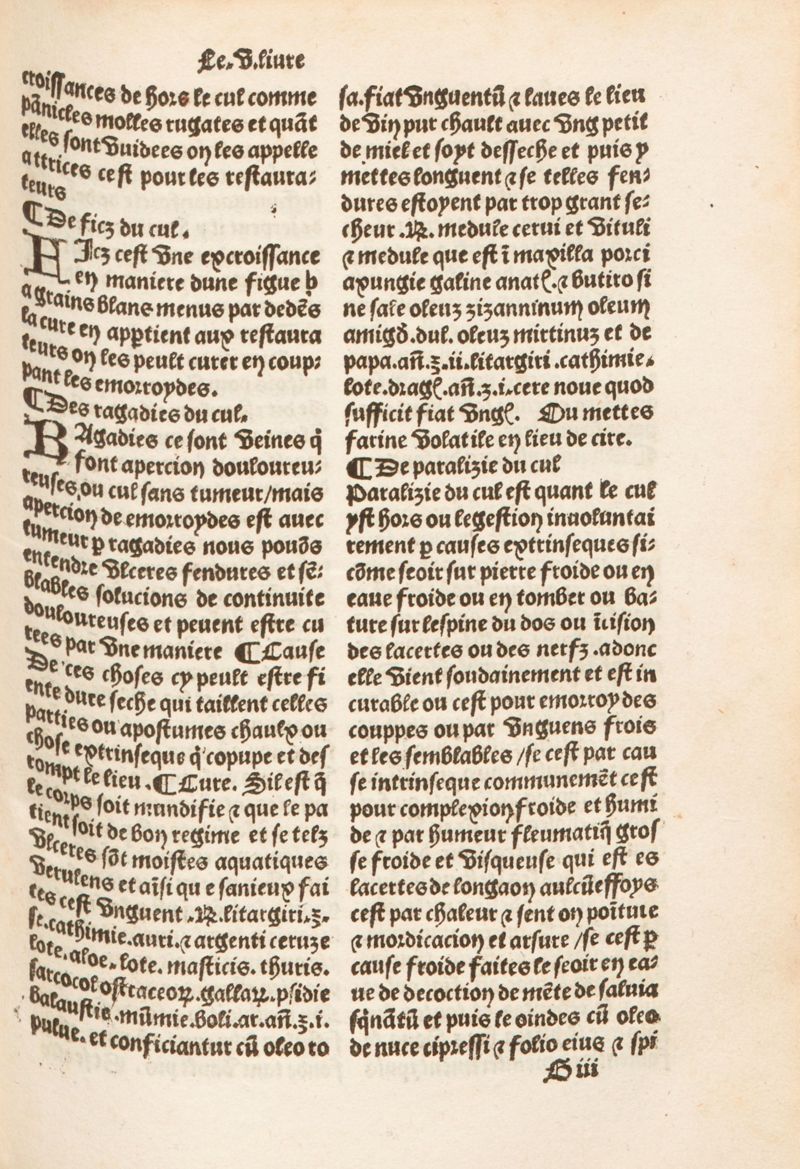 Le.V.liure
croissances de hors le cul comme
pānicles molles rugates et quāt
elles sont vuidees on les appelle
attrices cest pour les restaura⸗
teurs
¶De ficz du cul.
FIcz cest vne excroissance
en maniere dune figue h
a grains blans menus par dedēs
la cure en apptient aux restaura
teurs on les peult curer en coup⸗
pant les emorroydes.
¶Des ragadies du cul.
RAgadies ce sont veines q̄
font apercion douloureu⸗
reuses,ou cul sans tumeur/mais
apercion de emorroydes est auec
tumeur ꝑ ragadies nous pouōs
entendre vlceres fendures et sē⸗
blables solucions de continuite
douloureuses et peuent estre cu
rees par vne maniere ¶Cause
De ces choses cy peult estre fi
ente dure seche qui taillent celles
parties ou apostumes chaulx ou
chose extrinseque q̄ copupe et des
rompt le lieu.¶Cure. Sil est q̄
le corps soit mundifie ⁊ que le pa
tient soit de bon regime et se telz
vlceres sōt moistes aquatiques
verulens et aīsi qu e sanieux fai
tes cest vnguent.℞.litargiri.ʒ.
se.cathimie.auri.⁊ argenti ceruze
lote.aloe.lote. masticis. thuris.
sarcocol ostraceoꝝ.gallaꝝ.psidie
balaustie.mūmie.boli.ar.añ.ʒ.i.
pulue.et conficiantur cū oleo ro
sa.fiat vnguentū ⁊ laues le lieu
de vin pur chault auec vng petit
de miel et soyt desseche et puis y
mettes longuent ⁊ se telles fen⸗
dures estoyent par trop grant se⸗
cheur.℞. medule cerui et vituli
⁊ medule que est ī maxilla porci
axungie galine anatꝭ.⁊ butiro si
ne sale oleuz zizanninum oleum
amigd̄.dul. oleuz mirtinuz et de
papa.añ.ʒ.ii.litargiri.cathimie.
lote.dragꝭ.añ.ʒ.i.cere noue quod
sufficit fiat vngꝭ. Ou mettes
farine volatile en lieu de cire.
¶De paralizie du cul
Paralizie du cul est quant le cul
yst hors ou legestion inuoluntai
rement ꝑ causes extrinseques si⸗
cōme seoir sur pierre froide ou en
eaue froide ou en tomber ou ba⸗
ture sur lespine du dos ou īcision
des lacertes ou des nerfz.adonc
elle vient soudainement et est in
curable ou cest pour emorroydes
couppes ou par vnguens frois
et les semblables/se cest par cau
se intrinseque communemēt cest
pour complexion froide et humi
de ⁊ par humeur fleumatiq̄ gros
se froide et visqueuse qui est es
lacertes de longaon aulcūeffoys
cest par chaleur ⁊ sent on poītuie
⁊ mordicacion et arsure/se cest ꝑ
cause froide faites le seoir en ea⸗
ue de decoction de mēte de saluia
sq̄nātū et puis le oindes cū oleo
de nuce cipressi ⁊ folio eius ⁊ spi
S iii